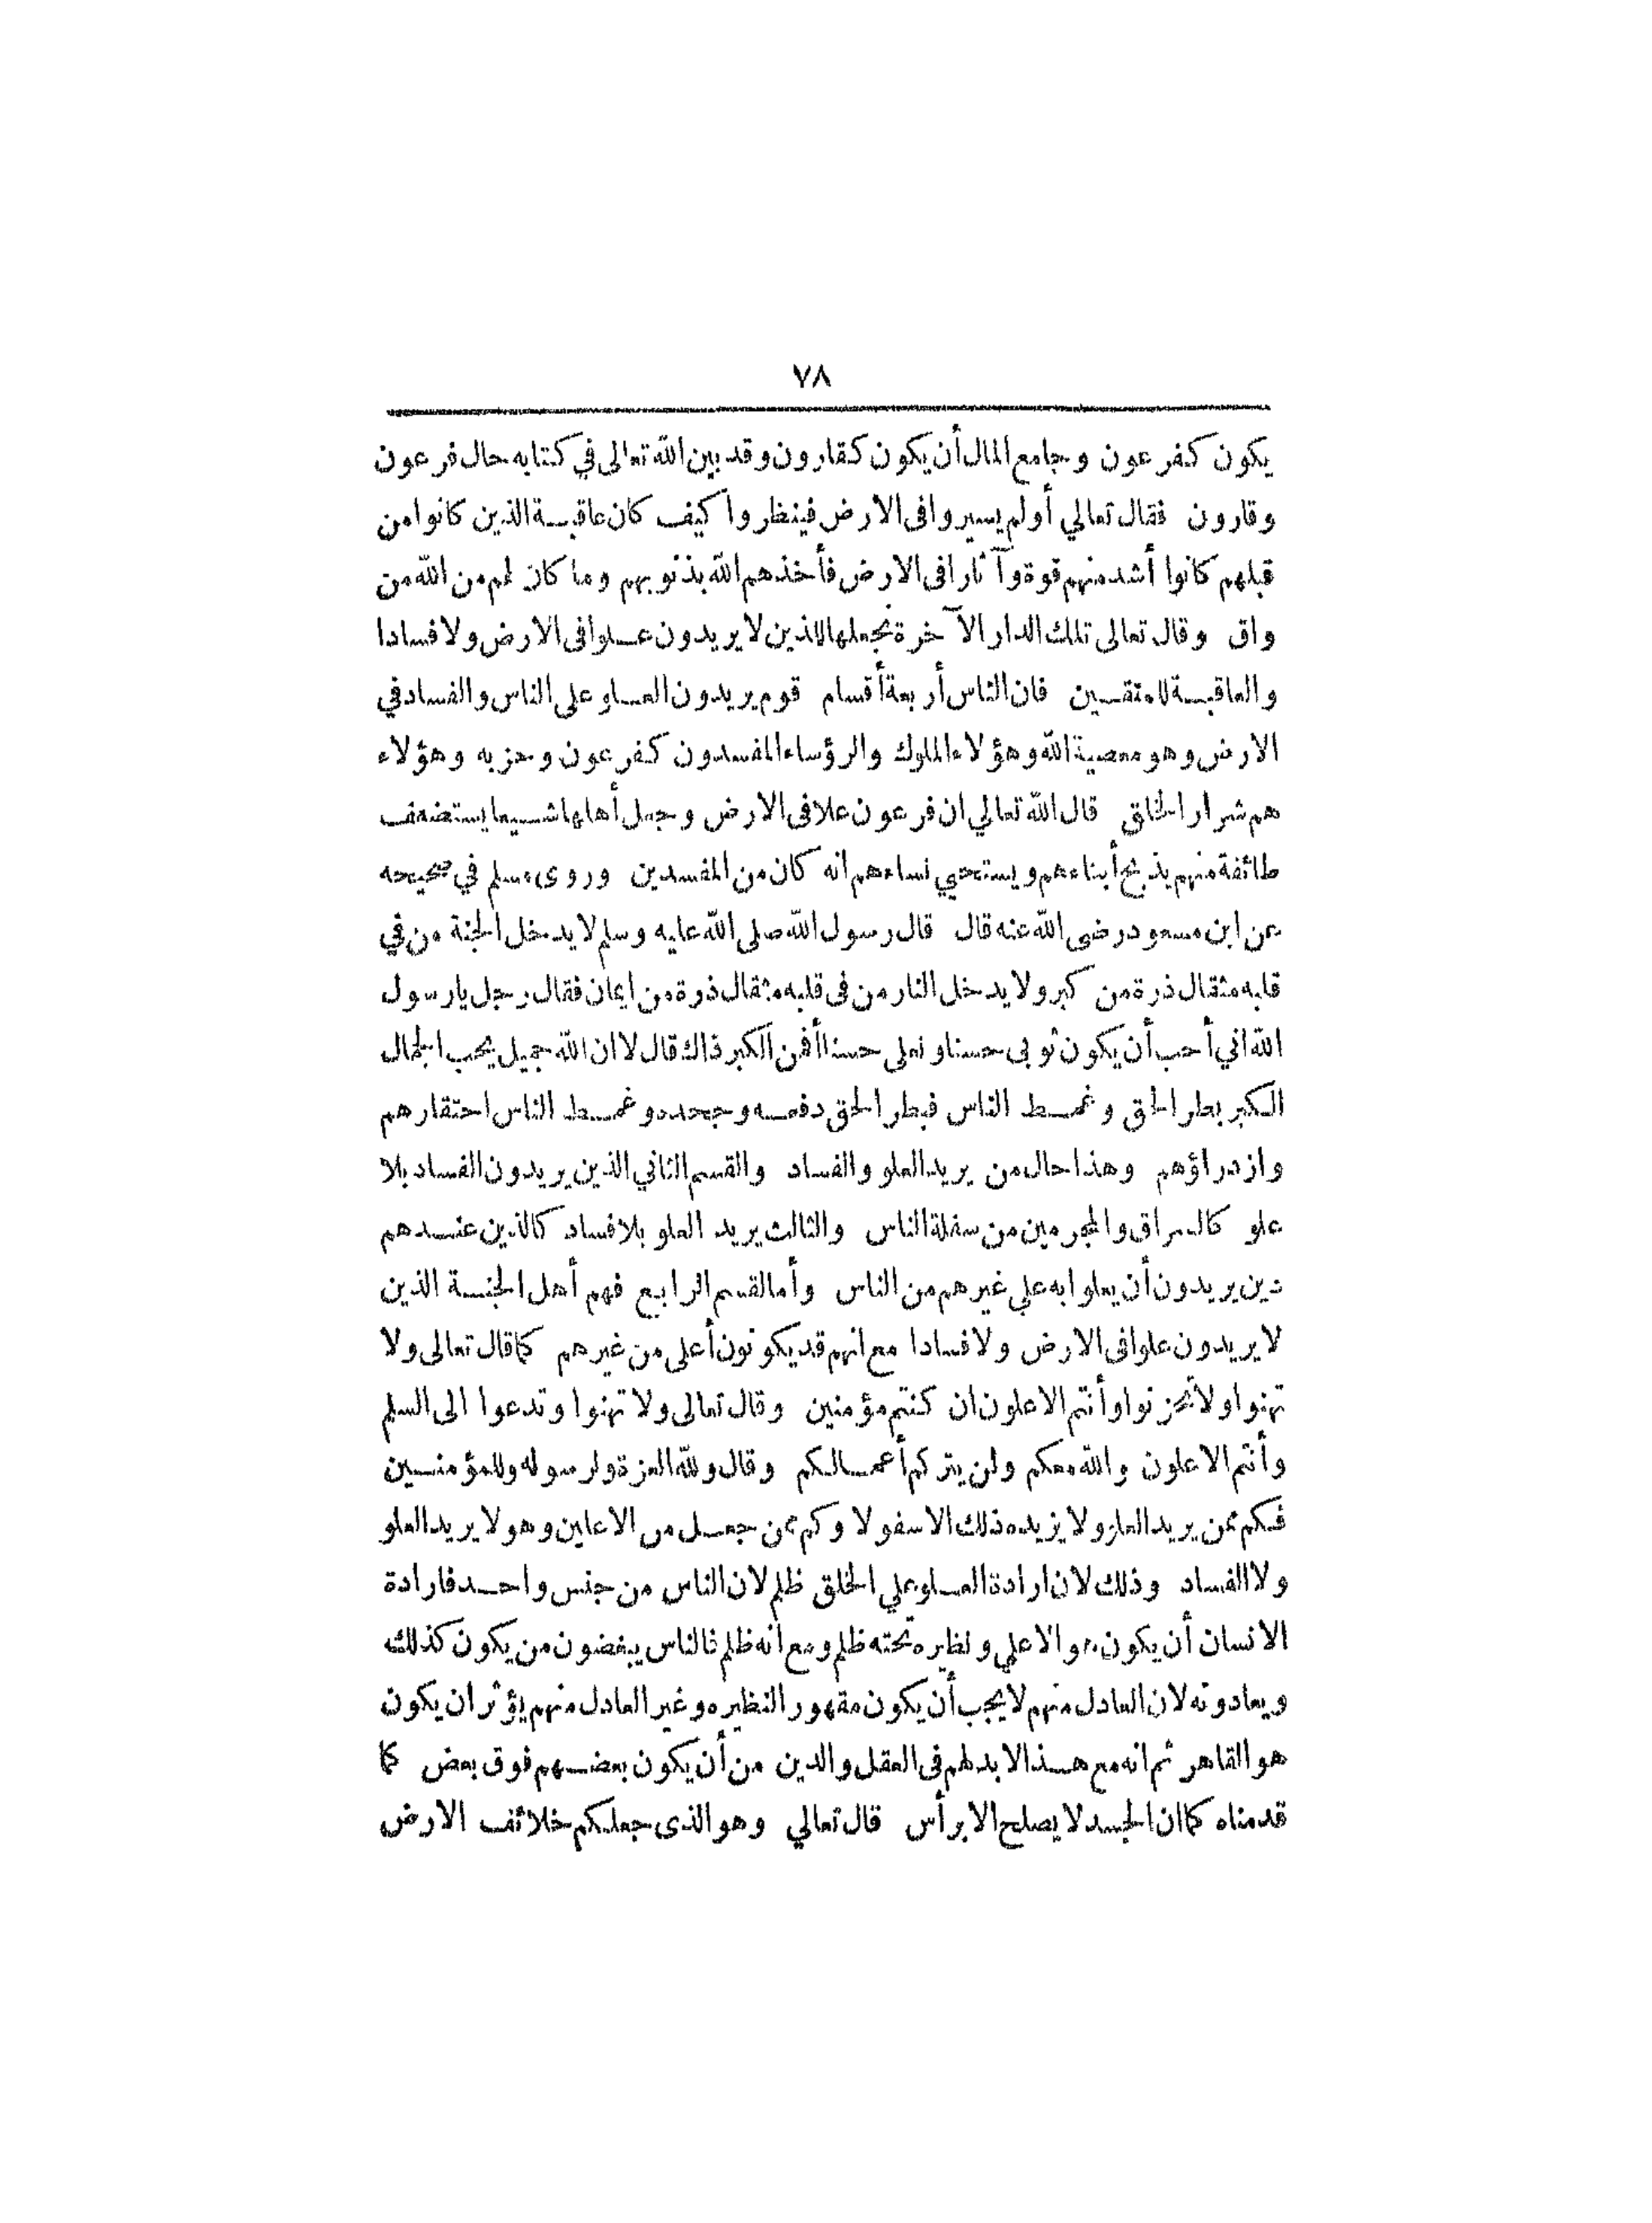 ٧٨
يكون كفرعون وجامع المال أن يكون كقارون وقد بين الله تعالى في كتابه حال فرعون
وقارون فقال تعالي أولم يسيروا فى الارض فينظروا كيف كان عاقبة الذين كانوا من
قبلهم كانوا أشد منهم قوة وآثارا فى الارض فأخذهم الله بذنوبهم وما كان لهم من الله من
واق وقال تعالى تلك الدار الآخرة نجعلها للذين لا يريدون علوا فى الارض ولا فسادا
والعاقبة للمتقين فان الناس أربعة أقسام قوم يريدون العلو على الناس والفساد في
الارض وهو معصية الله وهؤلاء الملوك والرؤساء المفسدون كفرعون وحزبه وهؤلاء
هم شرار الخلق قال الله تعالي ان فرعون علا فى الارض وجعل أهلها شيعا يستضعف
طائفة منهم يذبح أبناءهم ويستحيي نساءهم انه كان من المفسدين وروى مسلم في صحيحه
عن ابن مسعود رضى الله عنه قال قال رسول الله صلى الله عليه وسلم لا يدخل الجنة من في
قلبه مثقال ذرة من كبر ولا يدخل النار من فى قلبه مثقال ذرة من ايمان فقال رجل يارسول
الله اني أحب أن يكون ثوبى حسنا ونعلى حسنا أفمن الكبر ذاك قال لا ان الله جميل يحب الجمال
الكبر بطر الحق وغمط الناس فبطر الحق دفعه وجحده وغمط الناس احتقارهم
وازدراؤهم وهذا حال من يريد العلو والفساد والقسم الثاني الذين يريدون الفساد بلا
علو كالسراق والمجرمين من سفلة الناس والثالث يريد العلو بلا فساد كالذين عندهم
دين يريدون أن يعلوا به علي غيرهم من الناس وأما القسم الرابع فهم أهل الجنة الذين
لا يريدون علوا فى الارض ولا فسادا مع انهم قد يكونون أعلى من غيرهم كما قال تعالى ولا
تهنوا ولا تحزنوا وأنتم الاعلون ان كنتم مؤمنين وقال تعالى ولا تهنوا وتدعوا الى السلم
وأنتم الاعلون والله معكم ولن يتركم أعمالكم وقال ولله العزة ولرسوله وللمؤمنين
فكم ممن يريد العلو ولا يزيده ذلك الا سفولا وكم ممن جعل من الاعلين وهو لا يريد العلو
ولا الفساد وذلك لان ارادة العلو علي الخلق ظلم لان الناس من جنس واحد فارادة
الانسان أن يكون هو الاعلي ونظيره تحته ظلم ومع انه ظلم فالناس يبغضون من يكون كذلك
ويعادونه لان العادل منهم لا يجب أن يكون مقهورا لنظيره وغير العادل منهم يؤثر ان يكون
هو القاهر ثم انه مع هذا لا بد لهم فى العقل والدين من أن يكون بعضهم فوق بعض كما
قدمناه كما ان الجسد لا يصلح الا برأس قال تعالي وهو الذى جعلكم خلائف الارض